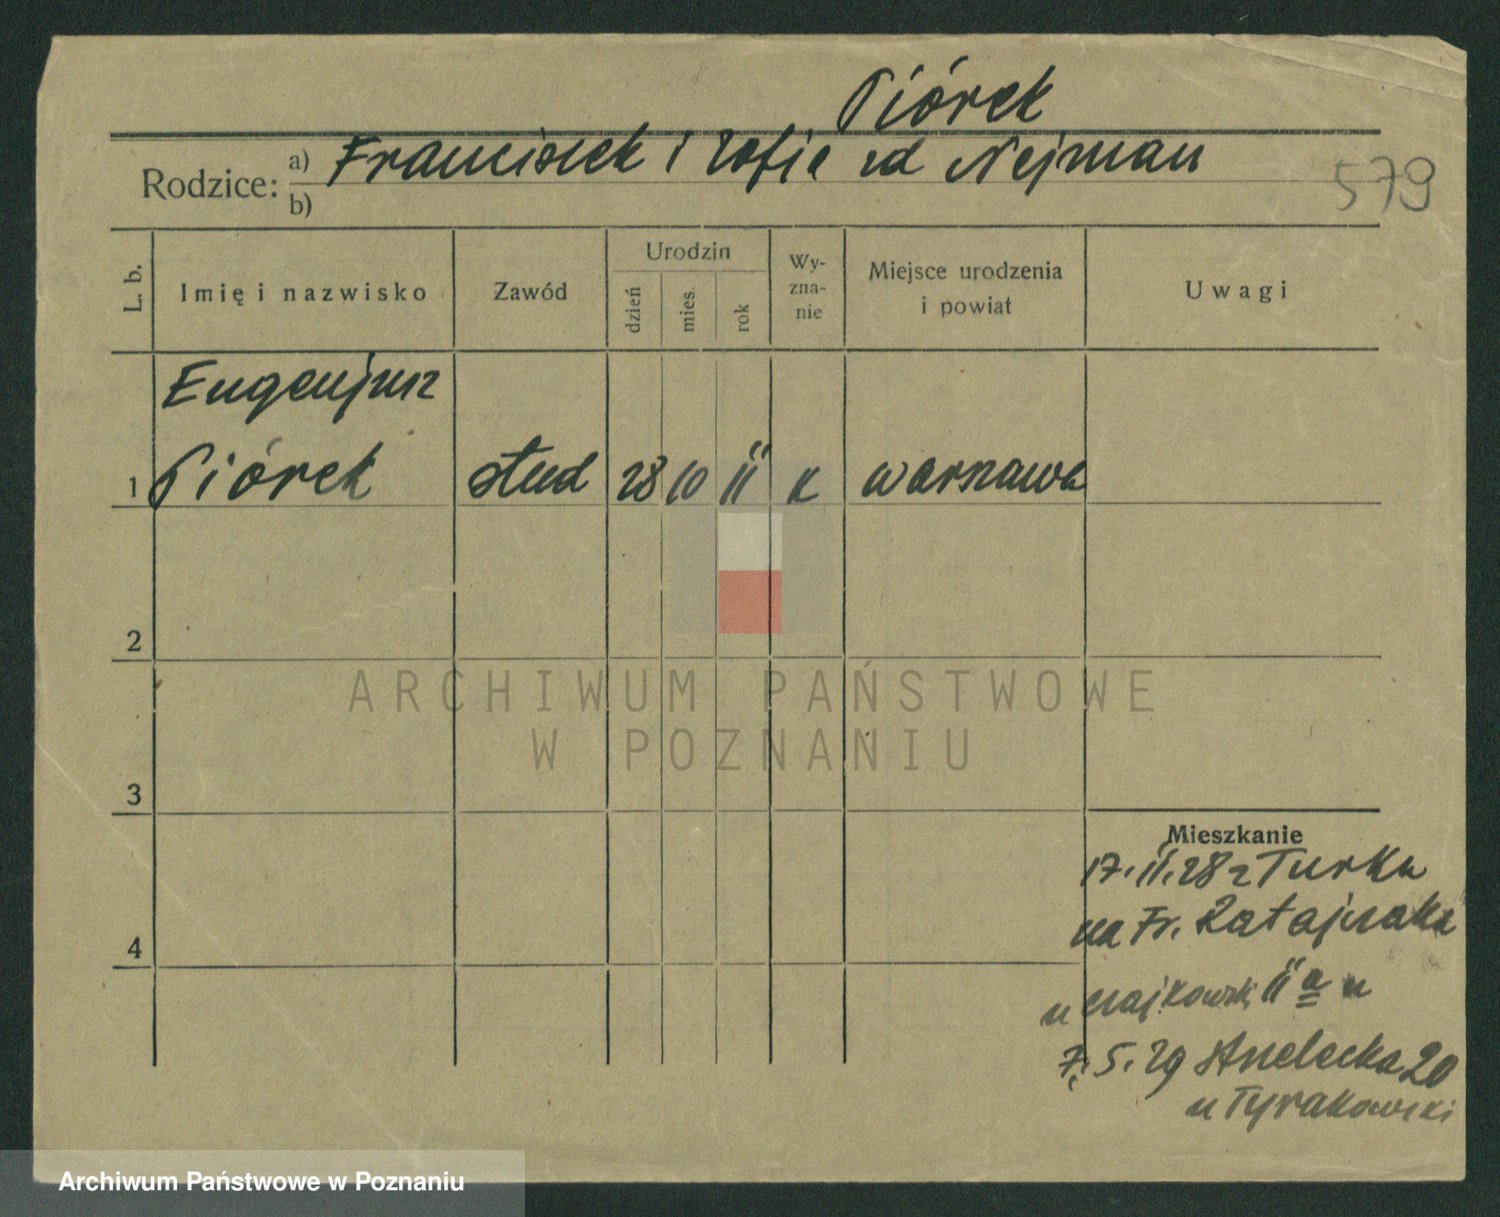 Piórek
Rodzice: a) Franciszek i Zofia zd Nejman
b)
579
L. b.
Imię i nazwisko
Zawód
Urodzin
dzień
mies.
rok
Wy-
zna-
nie
Miejsce urodzenia
i powiat
Uwagi
Eugenjusz
1 Piórek stud 28 10 11 k Warszawa
2
ARCHIWUM PAŃSTWOWE
W POZNANIU
3
Mieszkanie
17.11.28 z Turka
na Fr. Ratajczaka
4
u Czajkowski 11 a
7.5.29 Strzelecka 20
u Tyrakowski
Archiwum Państwowe w Poznaniu